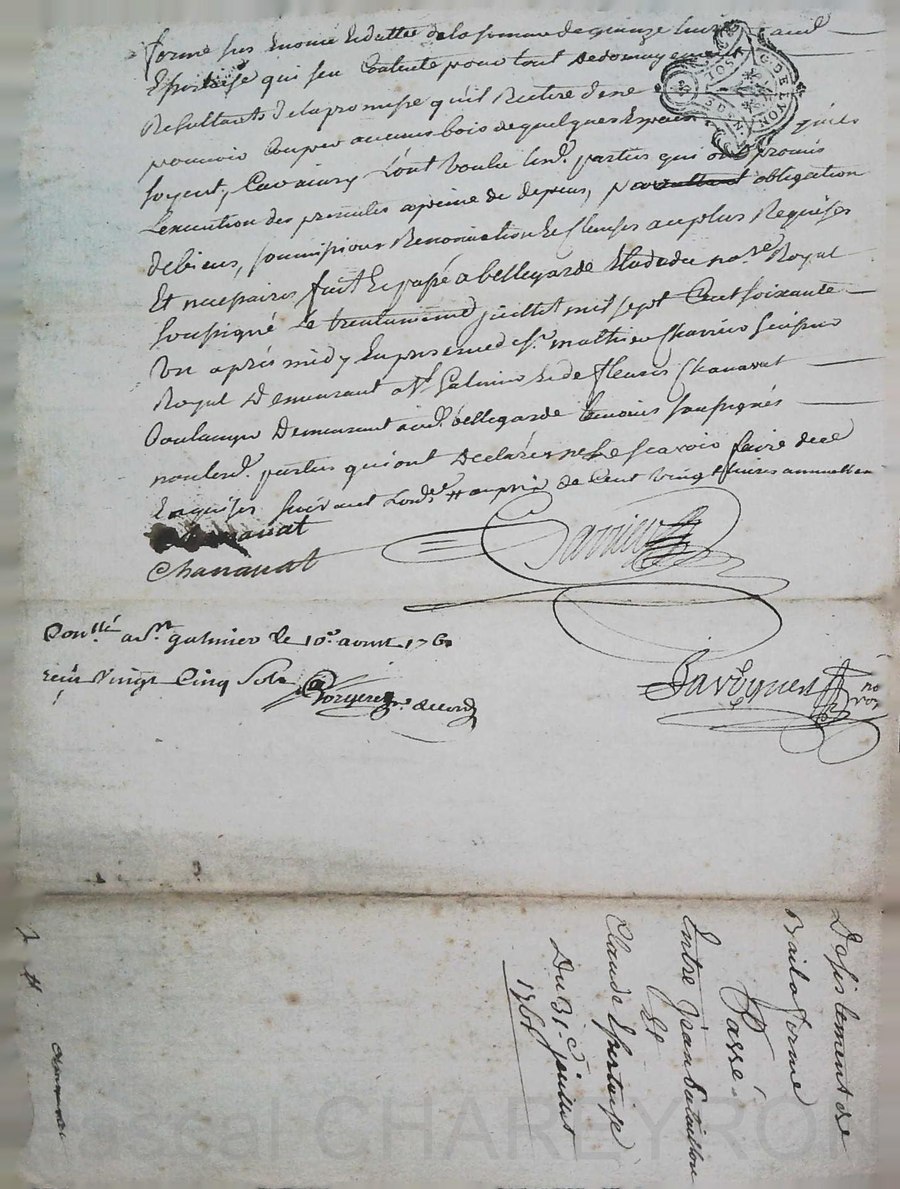 forme sus Enoncé de la somme de quinze
Espertise qui sen Contente pour tout Dedomagement
Resultants de la promesse qu'il Retire de ne
pouvoir Couper aucuns bois de quelques Especes qu'ils
soyent, L'ont Voulu Lesd. parties qui ont promis
L'execution des presentes a peine de depens, obligation
de biens, soumissions Renonciation et Clauses au plus Requises
Et necessaires fait Et passé a bellegarde Etude du no.re Royal
soussigné Le trente uniesme juillet mil sept Cent soixante
Un après midy En presence de s.r mathieu
Royal Demeurant a St Galmier et de fleuris Chanavat
Boulanger Demeurant aud. bellegarde temoins soussignés
non Lesd. parties qui ont Declarés ne Le scavoir faire de ce
Enquises suivant Lord.e # au prix de Cent Vingt livres annuellem
Chanavat
Chanavat
Con.llé a St galmier le 10.e aoust 1761
reçu Vingt Cinq Sols
G. DE LYON
Desistement de
Bail a ferme
Passé
Entre jean bataillon
Et
Claude Espertise
Du 31.e juillet
1761
CHARLEYRON